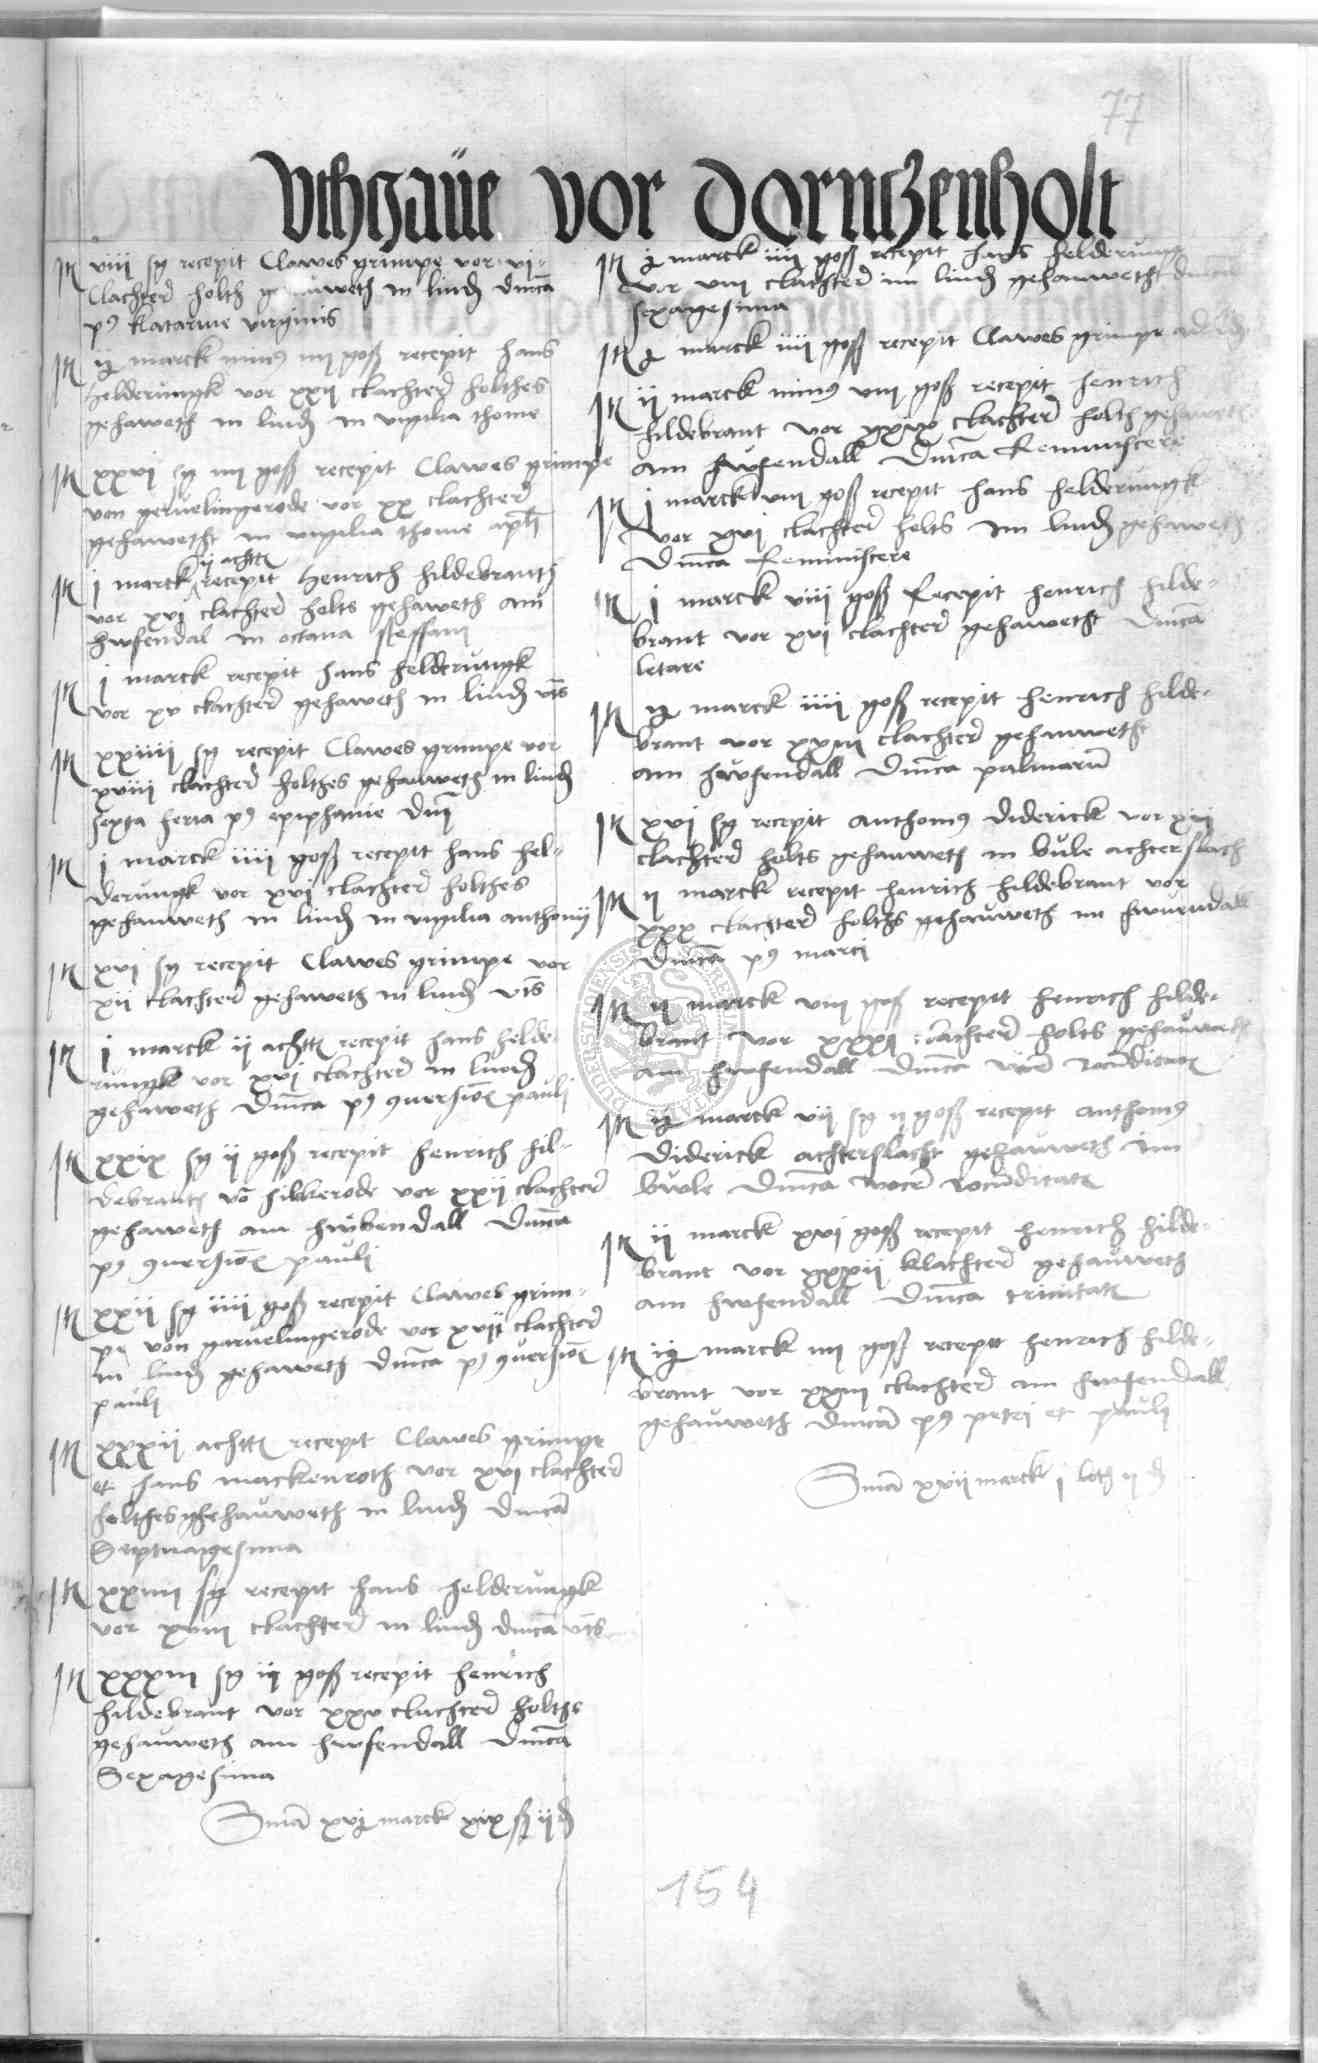 77
Uthgaüe vor dorntzenholt
It viii sg recepit Clawes grimpe vor vi
Clachterd holth gehauweth in lindz dmca
pꝰ Katarine virginis
It ij marck minꝰ iiii goss recepit hans
helderungk vor xxii clachterd holthes
gehaweth in lindz in vigilia thome
It xxvi sg iiii goss recepit Clawes grimpe
von geruelingerode vor xx clachterd
gehawetht in vigilia thome apli
It j marck ij achtn recepit Henrich hildebrantz
vor xvi clachterd holts gehaweth am
hwsendal in octava steffani
It j marck recepit hans helderungk
vor xv clachterd gehaweth in lindz vts
It xxiiii sg recepit Clawes grimpe vor
xviii clachterd holthes gehauweth in lindz
sexta feria pꝰ epiphanie dni
It j marck iiii goss recepit hans hel-
derungk vor xvi clachterd holthes
gehauweth in lindz in vigilia anthonij
It xvi sg recepit Clawes grimpe vor
xii clachterd gehaweth in lindz vts
It j marck ij achtn recepit hans helde-
rungk vor xvi clachterd in lindz
gehaweth dmca pꝰ ꝯuersion pauli
It xxix sg ij goss recepit henrich hil-
debrantz vo hilkerode vor xxii clachterd
gehaweth am hwbendall dmca
pꝰ ꝯuersion pauli
It xxii sg iiii goss recepit Clawes grim-
pe von garuelingerode vor xvii clachterd
in lindz gehaweth dmca pꝰ ꝯuersion
pauli
It xxxii achtn recepit Clawes grimpe
et hans mackenroth vor xvi clachterd
holthes gehauweth in lindz dmca
Septuagesima
It xxiiii sg recepit hans helderungk
vor xviii clachterd in lindz dmca vts
It xxxiii sg ij goss recepit henrich
hildebrant vor xxv clachterd holths
gehauweth am hwsendall dmca
Sexagesima
Sma xvj marck xix sg ij d
It marck iiii goss recepit hans helderung
vor viii clachterd im lindz gehauwetht
sexagesima
It marck iiii goss recepit Clawes grimpe
It ii marck minꝰ viii goss recepit henrich
hildebrant vor xxix clachterd holth gehaweth
am hwsendall dmca Reminiscere
It j marck viii goss recepit hans helderungk
vor xvi clachterd holts im lindz gehaweth
dmca Reminiscere
It j marck viii goss Recepit henrich hilde-
brant vor xvi clachterd gehawetht dmca
letare
It marck iiii goss recepit henrich hilde-
brant vor xxiii clachterd gehauwetht
am hwsendall dmca palmaru
It xvi sg recepit anthoniꝰ diderick vor xii
clachterd holts gehauweth in bule achterslach
It ii marck recepit henrich hildebrant vor
xxx clachterd holths gehauweth im
dmca pꝰ marci
It ii marck viii goss recepit henrich hilde-
brant vor clachterd holts gehauweth
am hwsendall dmca
It marck vii sg ij goss recepit anthoniꝰ
diderick achterslacht gehauweth im
bule dmca vocem
It ij marck xvi goss recepit henrich hilde-
brant vor xxxii klachterd gehauweth
am hwsendall dmca trinitatis
It marck iiii goss recepit henrich hilde-
brant vor xxiii clachterd am hwsendall
gehauweth dmca pꝰ petri et pauli
Sma xvii marck j loth ij d
154